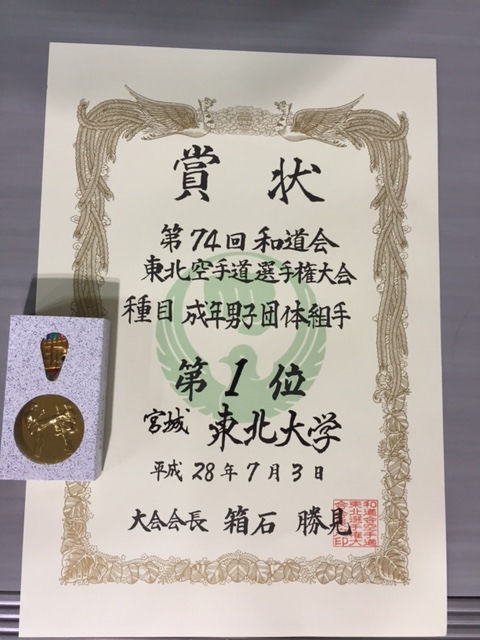 賞状
第74回和道会
東北空手道選手権大会
種目 成年男子団体組手
第1位
宮城 東北大学
平成28年7月3日
大会会長 箱石 勝見
和道会空手道
東北選手権大
会会長印